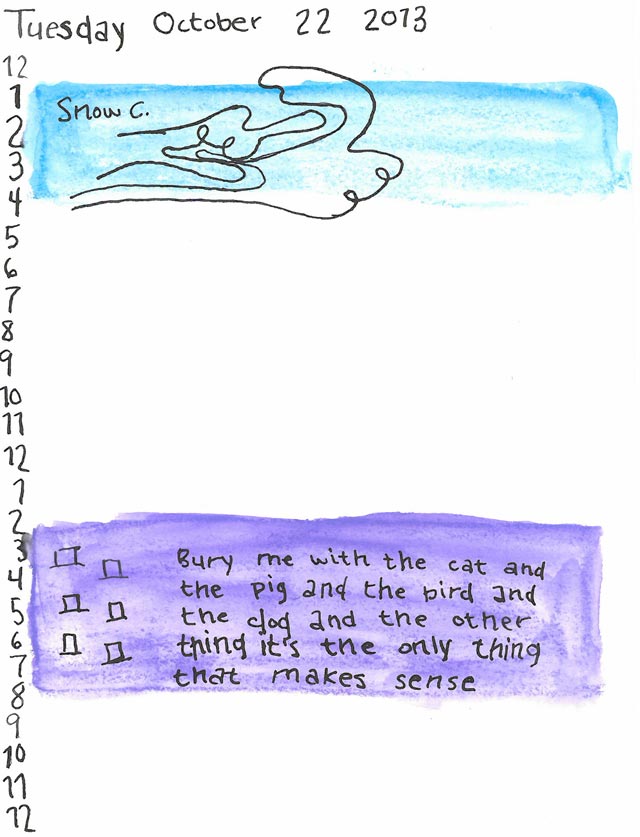 Tuesday October 22 2013
12
1
Snow C.
2
3
4
5
6
7
8
9
10
11
12
1
2
3
4
5
6
7
8
9
10
11
12
Bury me with the cat and
the pig and the bird and
the dog and the other
thing it's the only thing
that makes sense